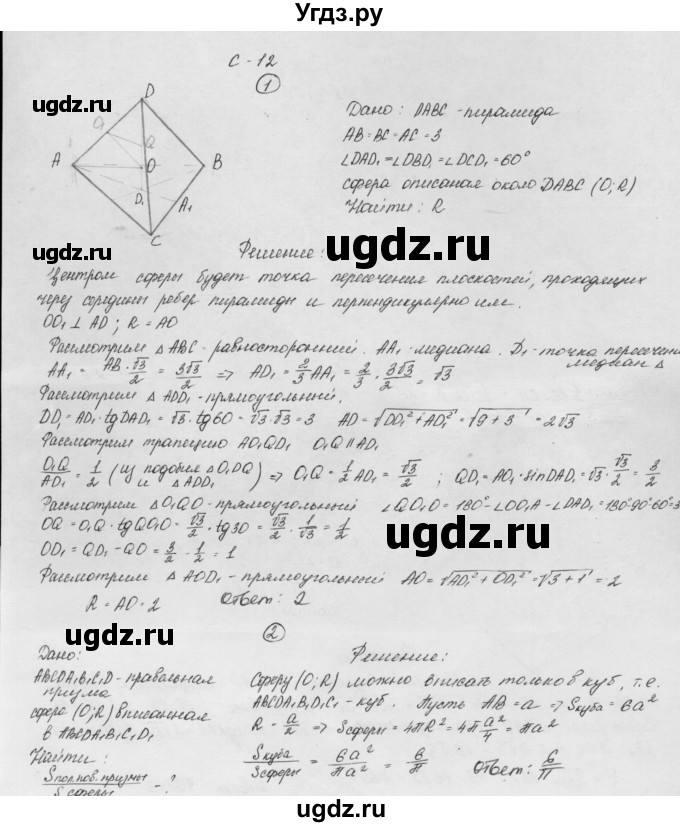 Угдз.ру
С-12
1
ugdz.ru
D
A
O
B
D₁
A₁
C
Дано: DABC - пирамида
AB=BC=AC=3
∠DAD₁=∠DBD₁=∠DCD₁=60°
сфера описаная около DABC (O;R)
Найти: R
ugdz.ru
Решение:
Центром сферы будет точка пересечения плоскостей, проходящих
через середины ребер пирамиды и перпендикулярно им.
OO₁⊥AD; R=AO
Рассмотрим △ABC - равносторонний. AA₁ - медиана. D₁ - точка пересечения
медиан △
AA₁ = AB·√3/2 = 3√3/2 => AD₁ = 2/3 AA₁ = 2/3 · 3√3/2 = √3
Рассмотрим △ADD₁ - прямоугольный.
DD₁ = AD₁·tgDAD₁ = √3·tg60 = √3·√3 = 3 AD = √(DD₁²+AD₁²) = √(9+3) = 2√3
Рассмотрим трапецию AO₁QD₁ O₁Q∥AD₁
O₁Q/AD₁ = 1/2 (из подобия △O₁DQ и △ADD₁) => O₁Q = 1/2 AD₁ = √3/2; QD₁ = AO₁·sinDAD₁ = √3·√3/2 = 3/2
Рассмотрим △O₁QO - прямоугольный ∠QO₁O = 180°-∠OO₁A-∠DAD₁ = 180°-90°-60°=3
OQ = O₁Q·tgQO₁O = √3/2·tg30 = √3/2 · 1/√3 = 1/2
OD₁ = QD₁-QO = 3/2 - 1/2 = 1
Рассмотрим △AOD₁ - прямоугольный AO = √(AD₁²+OD₁²) = √(3+1) = 2
R = AO = 2 Ответ: 2
ugdz.ru
2
Дано:
ABCDA₁B₁C₁D - правильная
призма
сфера (O;R) вписанная
в ABCDA₁B₁C₁D₁
Найти:
Sпол.пов.призмы/Sсферы - ?
Решение:
Сферу (O;R) можно вписать только в куб, т.е.
ABCDA₁B₁D₁C₁ - куб. Пусть AB=a => Sкуба=6a²
R = a/2 => Sсферы = 4πR² = 4π a²/4 = πa²
Sкуба/Sсферы = 6a²/πa² = 6/π Ответ: 6/π
ugdz.ru
ugdz.ru
ugdz.ru
ugdz.ru
ugdz.ru
ugdz.ru